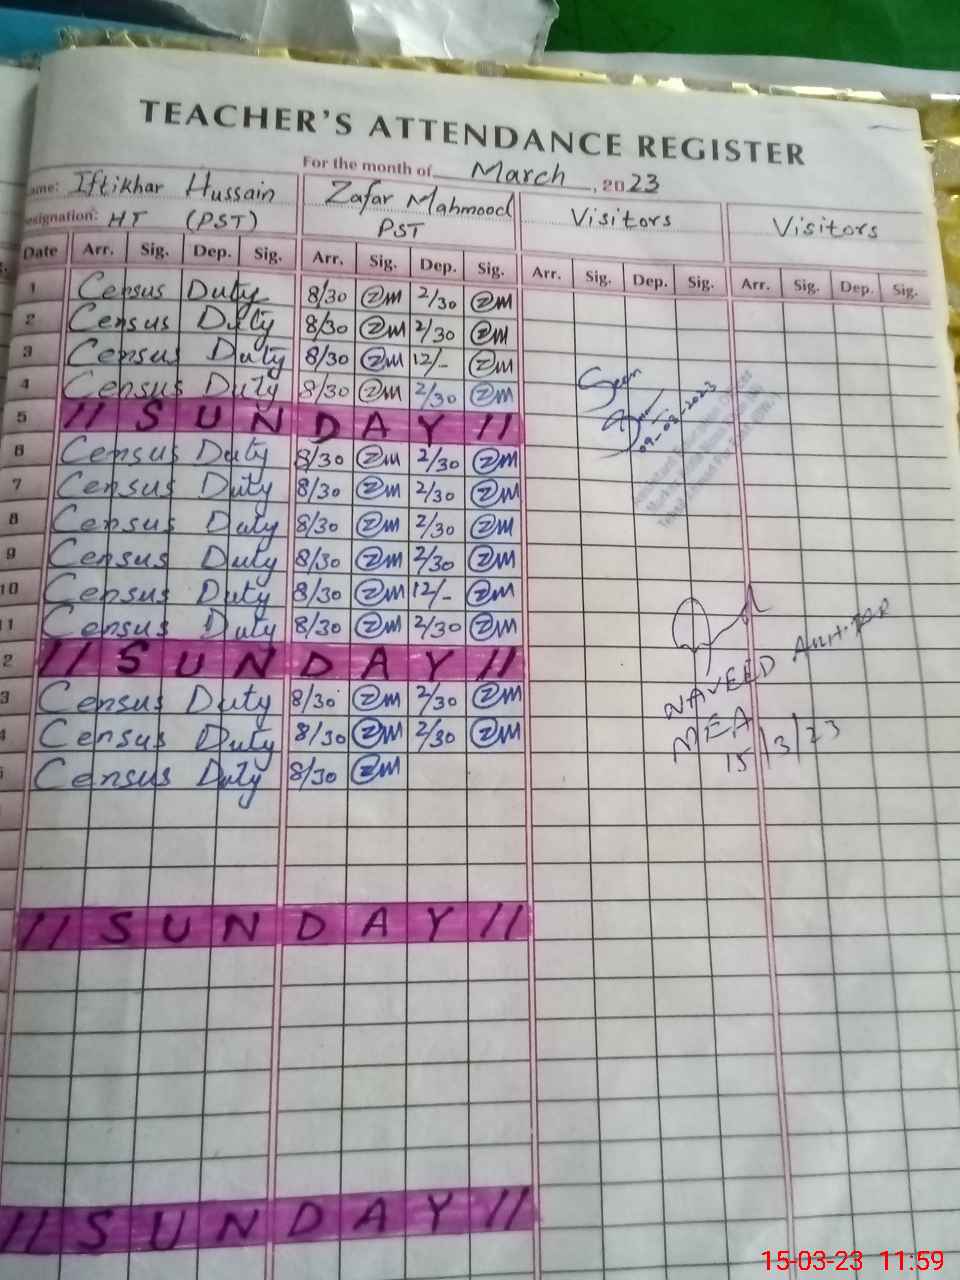 TEACHER'S ATTENDANCE REGISTER
For the month of March, 2023
ame: Iftikhar Hussain Zafar Mahmood Visitors Visitors
esignation: HT (PST) PST
Date Arr. Sig. Dep. Sig. Arr. Sig. Dep. Sig. Arr. Sig. Dep. Sig. Arr. Sig. Dep. Sig.
1 Census Duty 8/30 ZM 2/30 ZM
2 Census Duty 8/30 ZM 2/30 ZM
3 Census Duty 8/30 ZM 12/- ZM
4 Census Duty 8/30 ZM 2/30 ZM
Seen
09-03-2023
5 // S U N D A Y //
6 Census Duty 8/30 ZM 2/30 ZM
7 Census Duty 8/30 ZM 2/30 ZM
8 Census Duty 8/30 ZM 2/30 ZM
9 Census Duty 8/30 ZM 2/30 ZM
10 Census Duty 8/30 ZM 12/- ZM
11 Census Duty 8/30 ZM 2/30 ZM
2 // S U N D A Y //
3 Census Duty 8/30 ZM 2/30 ZM
NAVEED
4 Census Duty 8/30 ZM 2/30 ZM
MEA
15/3/23
Census Duty 8/30 ZM
// S U N D A Y //
// S U N D A Y //
15-03-23 11:59